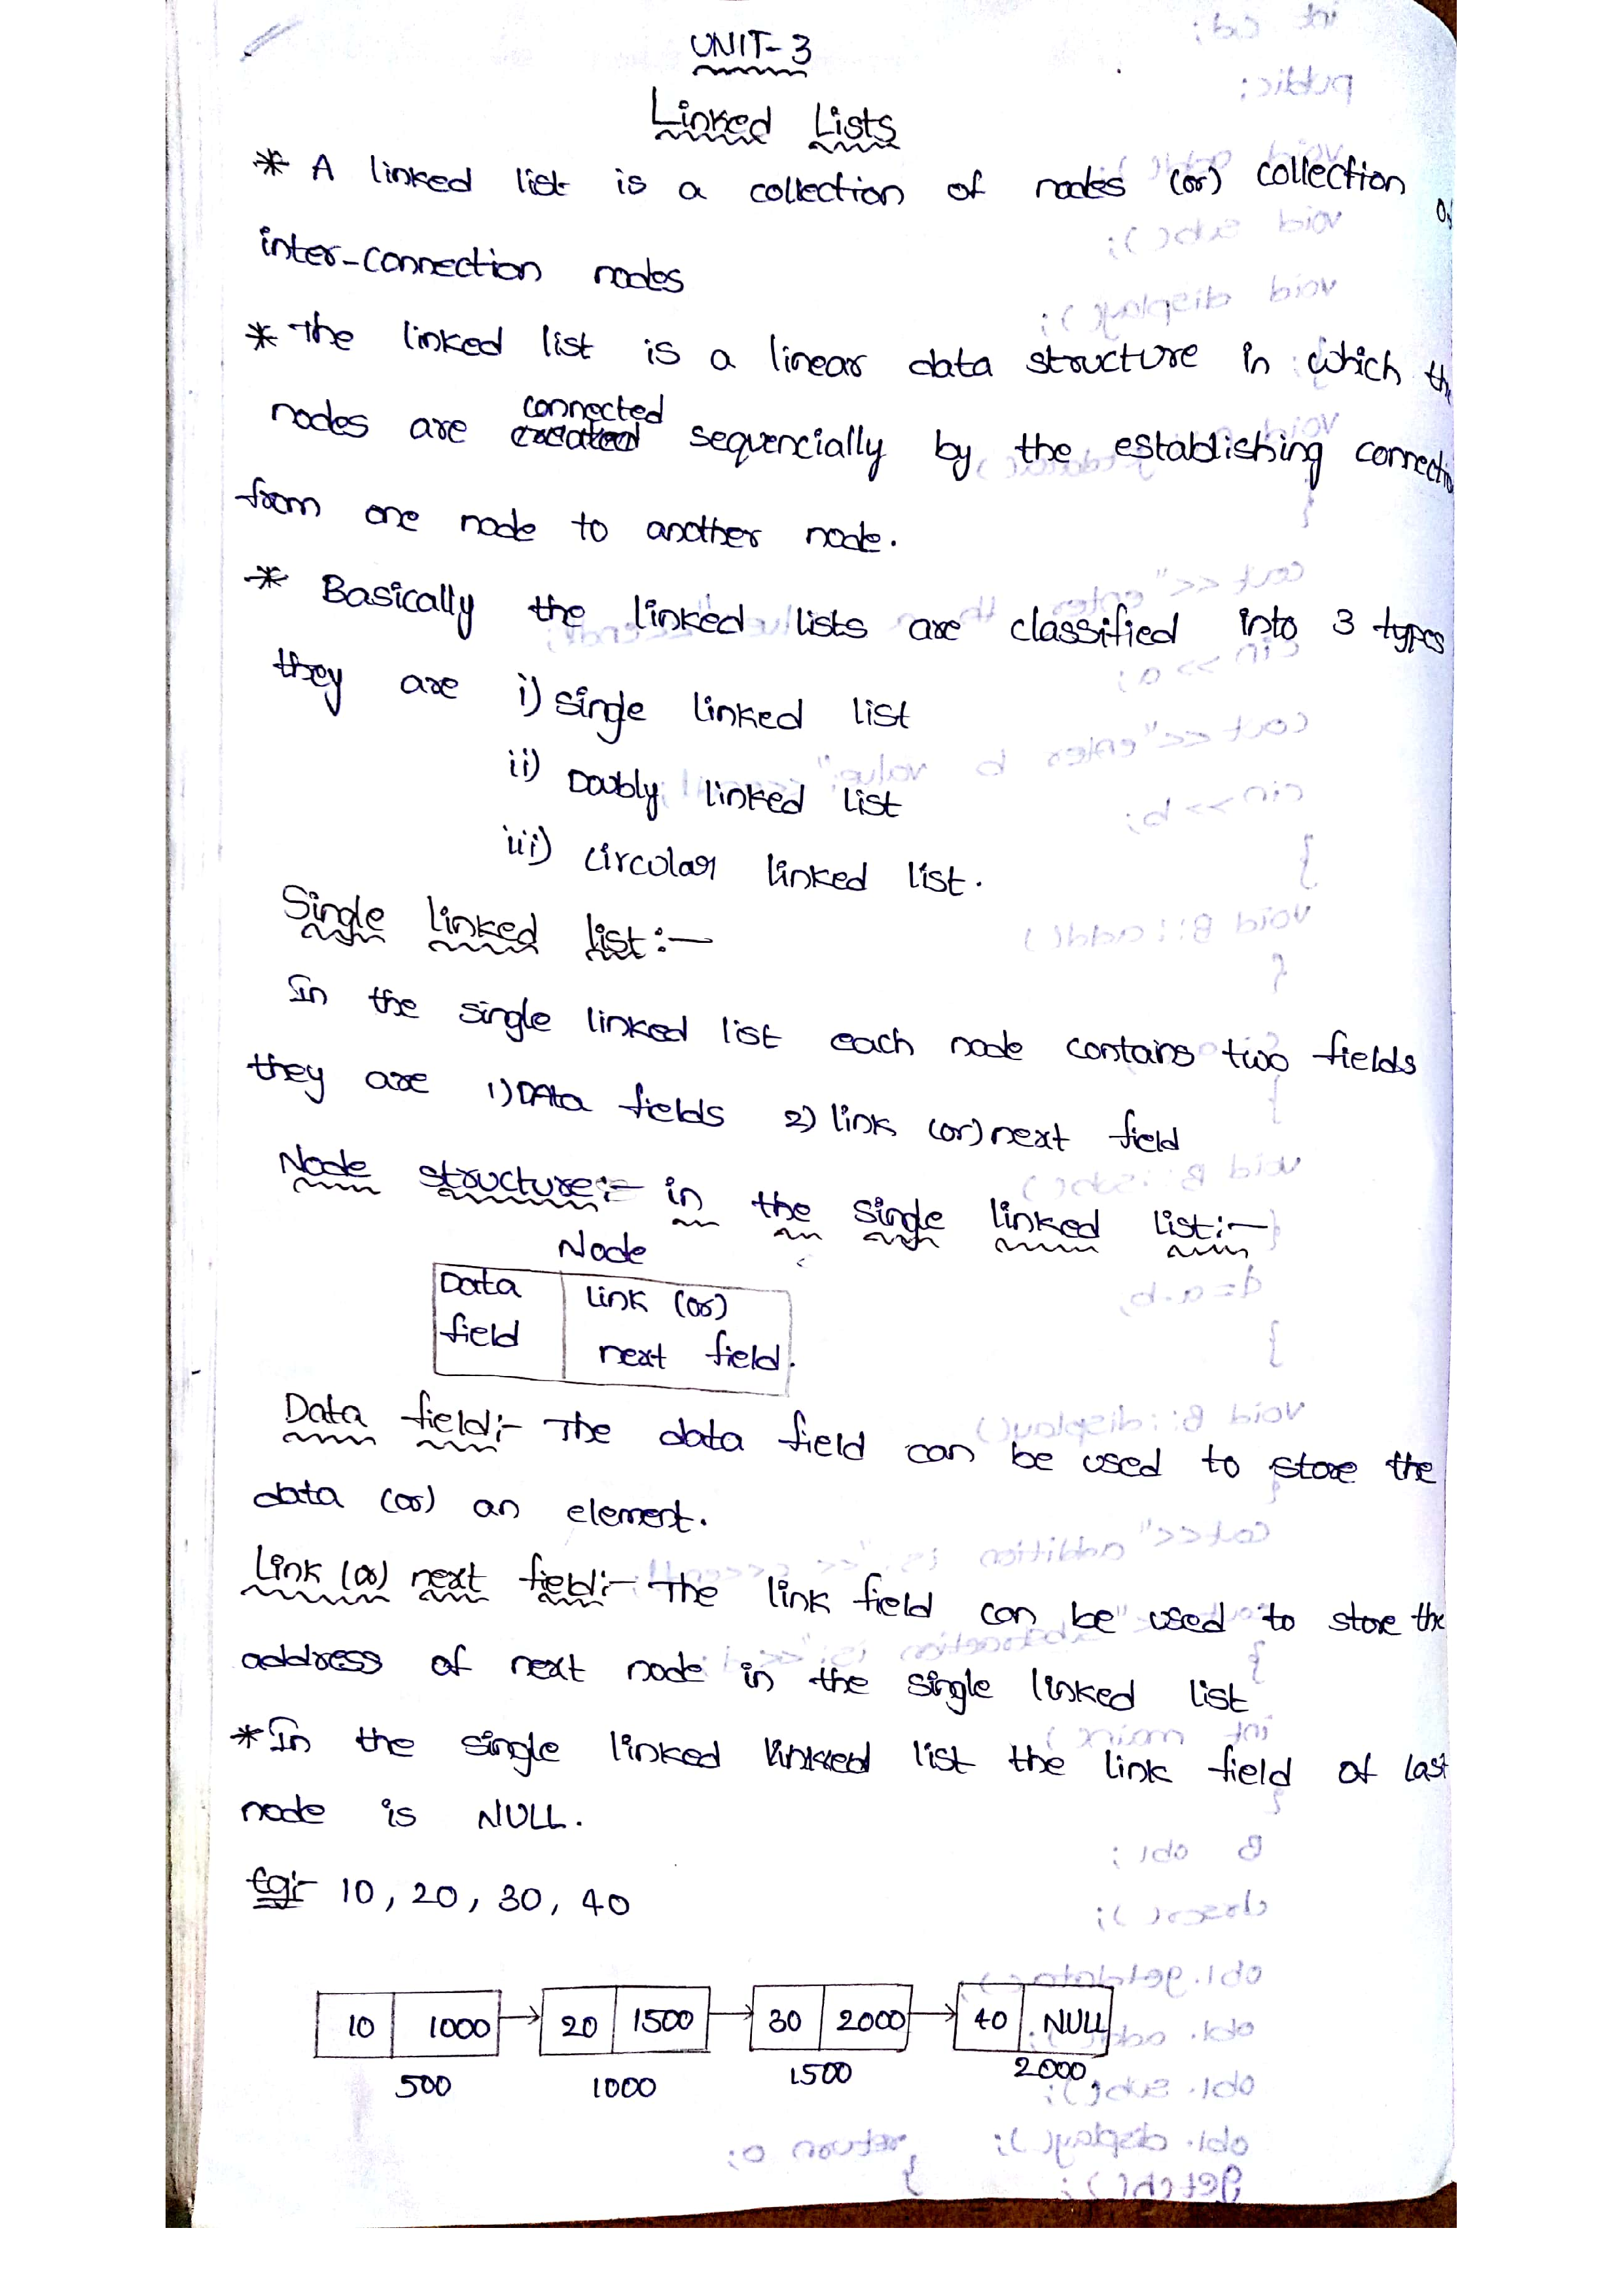 UNIT-3
Linked Lists
* A linked list is a collection of nodes (or) collection of
inter-connection nodes
* The linked list is a linear data structure in which the
nodes are connected sequencially by the establishing connectio
from one node to another node.
* Basically the linked lists are classified into 3 types
they are i) single linked list
ii) Doubly linked list
iii) circular linked list.
Single linked list:-
In the single linked list each node contains two fields
they are 1) DAta fields 2) link (or) next field
Node structure:- in the single linked list:-
Node
Data field | link (or) next field.
Data field:- The data field can be used to store the
data (or) an element.
Link (or) next field:- The link field can be used to store the
address of next node in the single linked list
* In the single linked linked list the link field of last
node is NULL.
Eg:- 10, 20, 30, 40
10 1000 → 20 1500 → 30 2000 → 40 NULL
500 1000 1500 2000